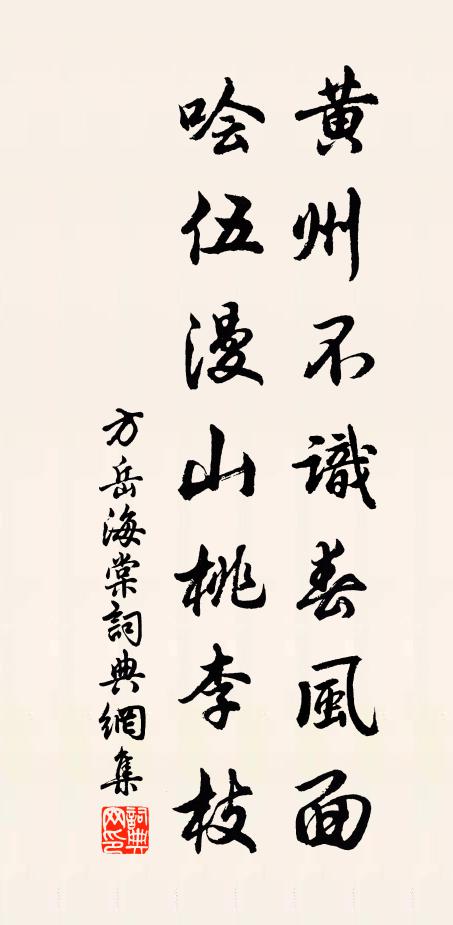 黄州不識春風面
噲伍漫山桃李枝
方岳海棠詞典網集
詞典網印